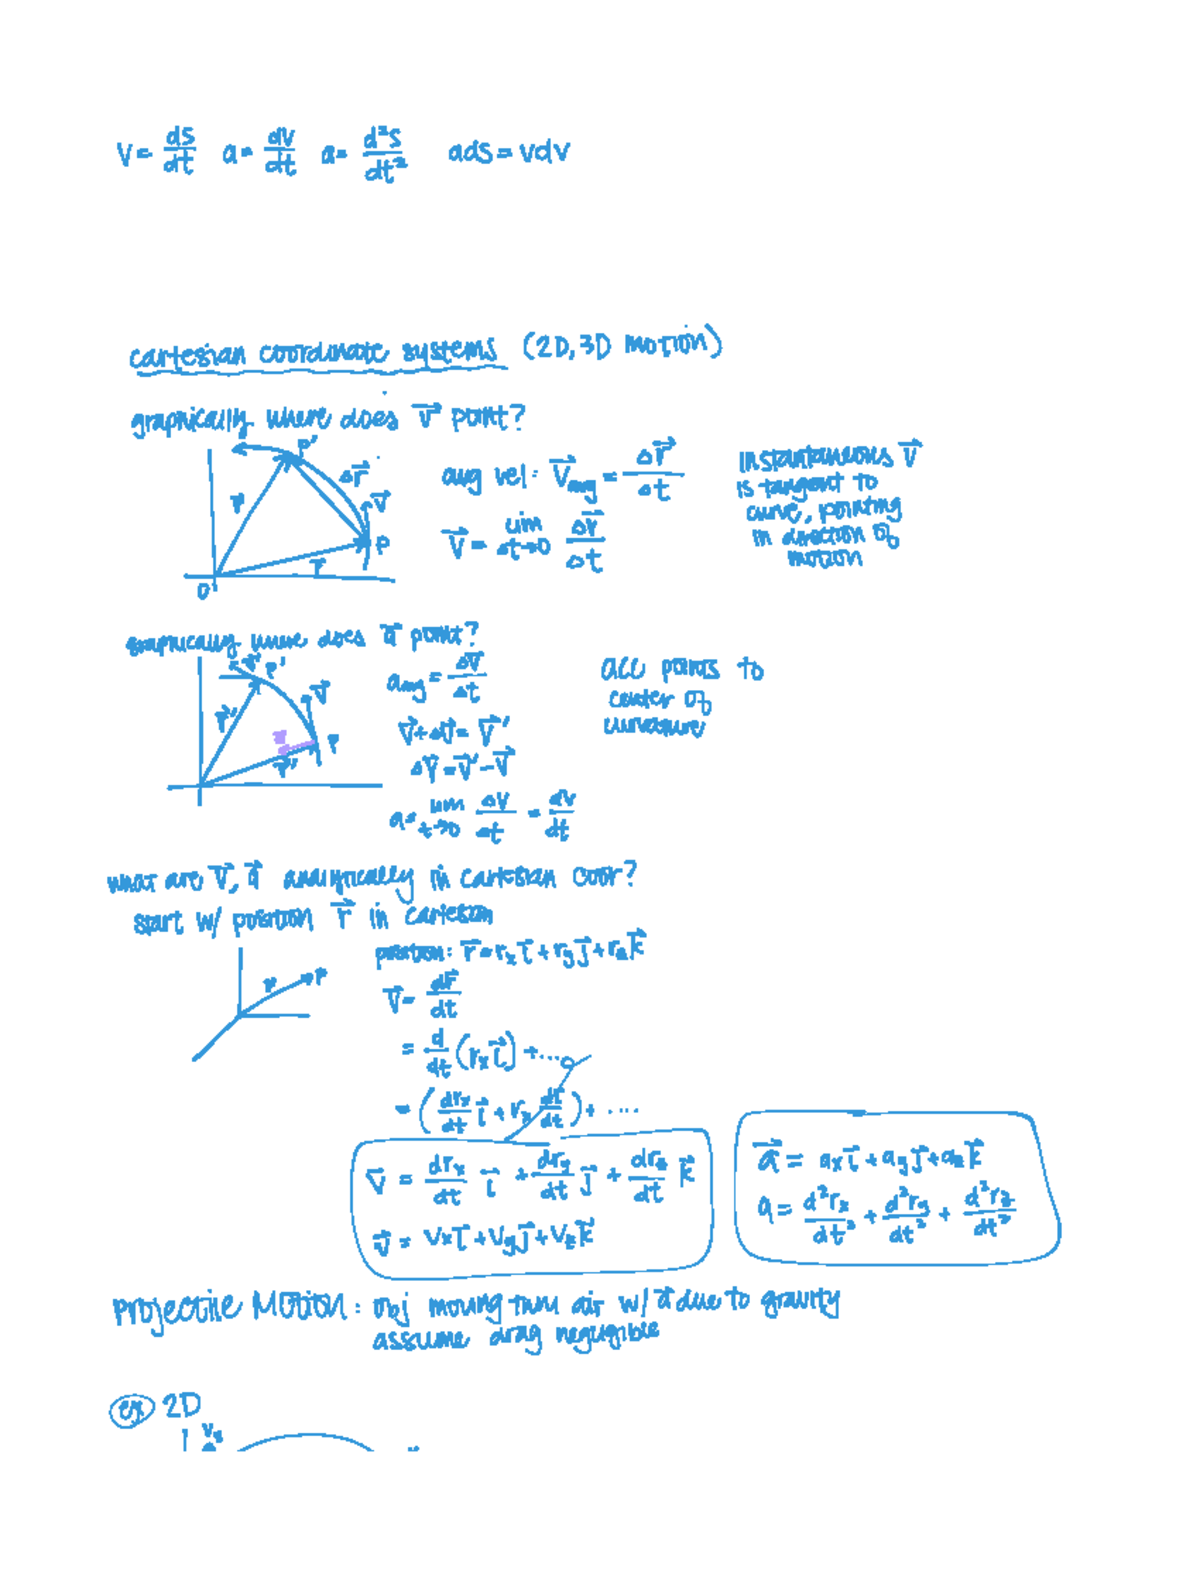 v = ds/dt a = dv/dt a = d²s/dt² ads = vdv
cartesian coordinate systems (2D, 3D motion)
graphically where does v⃗ point?
P'
Δr⃗
r⃗'
v⃗
P
r⃗
O
avg vel: v⃗avg = Δr⃗/Δt
v⃗ = lim Δt→0 Δr⃗/Δt
instantaneous v⃗
is tangent to
curve, pointing
in direction of
motion
graphically where does a⃗ point?
v⃗' P'
v⃗
r⃗'
P
a⃗
r⃗
aavg = Δv⃗/Δt
v⃗ + Δv⃗ = v⃗'
Δv⃗ = v⃗' - v⃗
a = lim t→0 Δv/Δt = dv/dt
acc points to
center of
curvature
what are v⃗, a⃗ analytically in cartesian coor?
start w/ position r⃗ in cartesian
r⃗ P
position: r⃗ = rₓi⃗ + r_yj⃗ + r_zk⃗
v⃗ = dr⃗/dt
= d/dt (rₓi⃗) + ... 0
= (drₓ/dt i⃗ + rₓ di⃗/dt) + ....
v⃗ = drₓ/dt i⃗ + dr_y/dt j⃗ + dr_z/dt k⃗
v⃗ = vₓi⃗ + v_yj⃗ + v_zk⃗
a⃗ = aₓi⃗ + a_yj⃗ + a_zk⃗
a = d²rₓ/dt² + d²r_y/dt² + d²r_z/dt²
Projectile Motion: obj moving thru air w/ a⃗ due to gravity
assume drag negligible
ex 2D